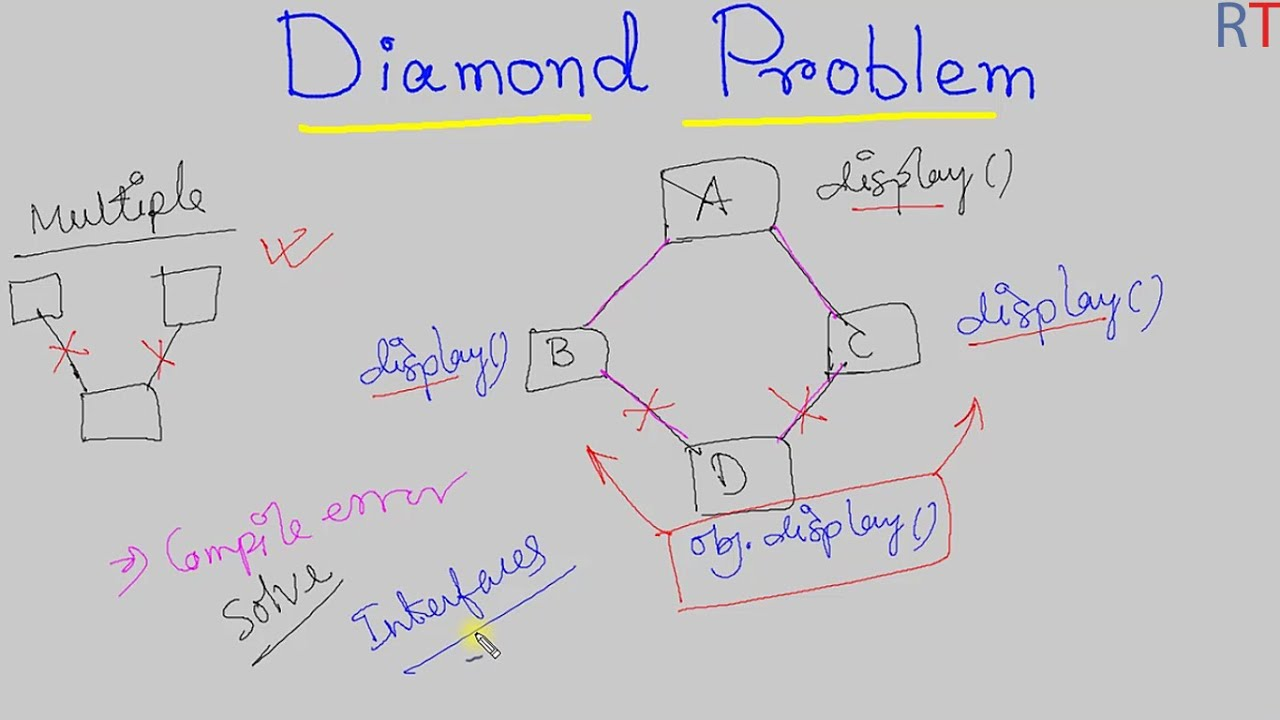 RT
Diamond Problem
Multiple
A
display()
B
display()
C
display()
D
obj.display()
=> Compile error
Solve
Interfaces